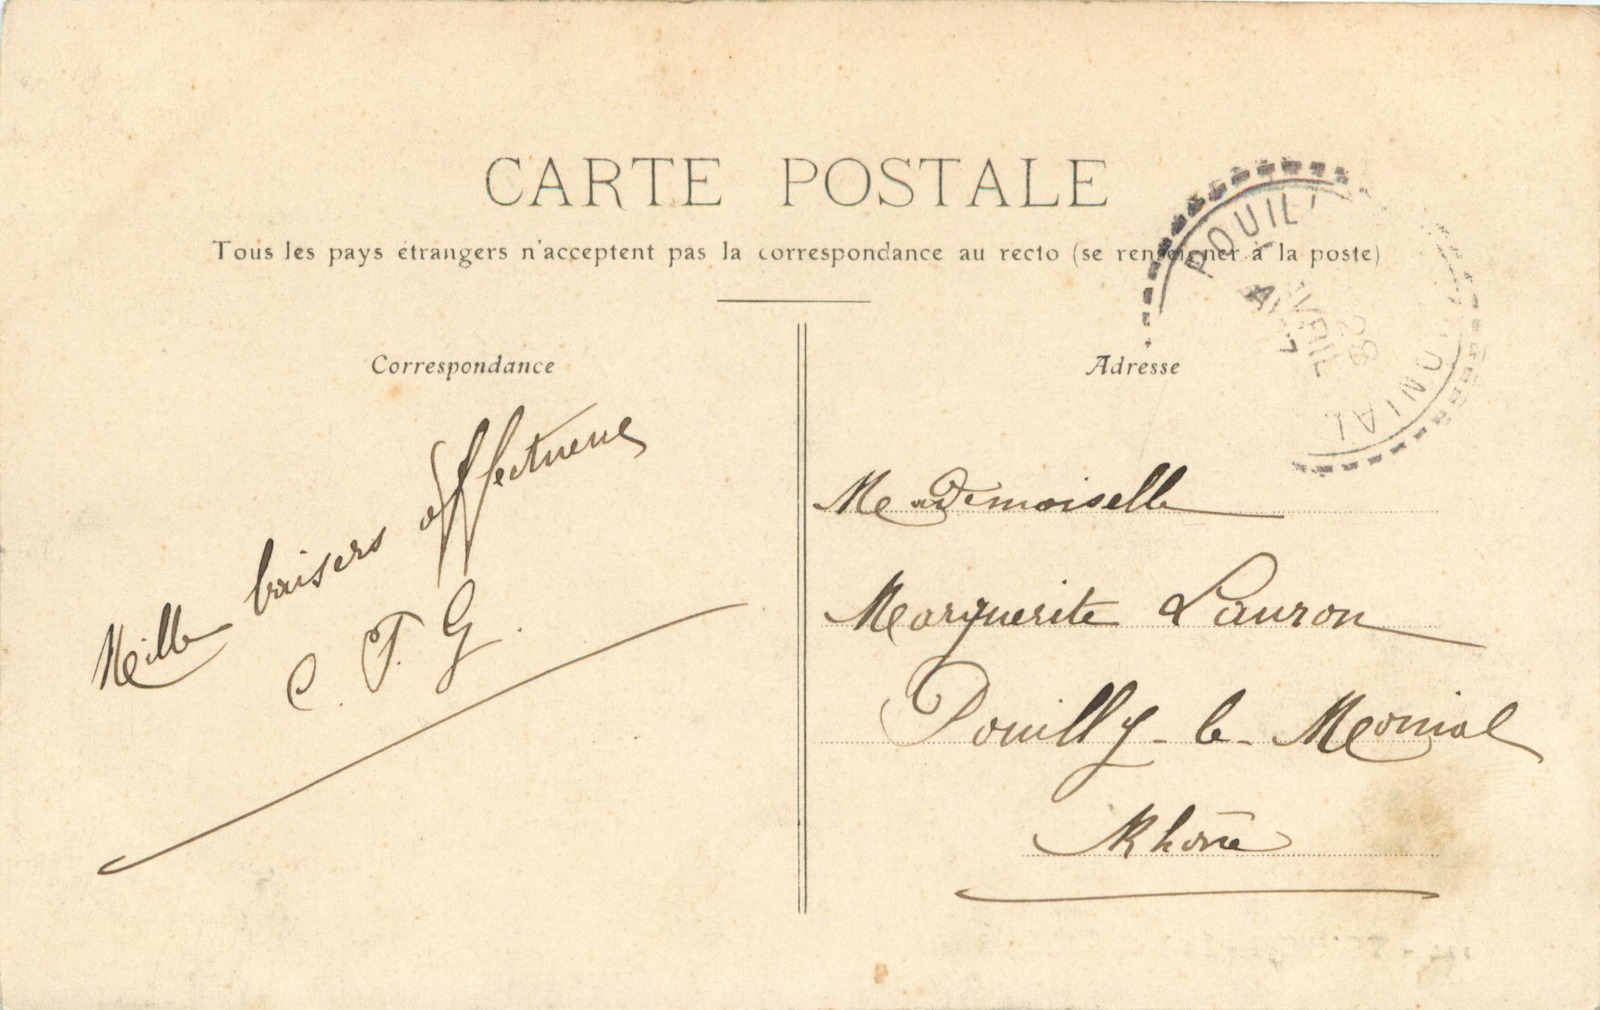 CARTE POSTALE
Tous les pays étrangers n'acceptent pas la correspondance au recto (se renseigner à la poste)
Correspondance
Adresse
Mille baisers affectueux
C. F. G.
Mademoiselle
Marguerite Lauron
Pouilly-le-Monial
Rhône
POUILL
AVRIL
28
ONIAL